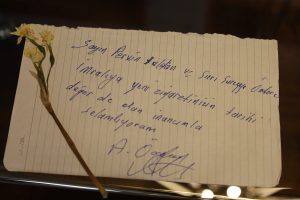 Sayın Pervin Buldan ve Sırrı Süreyya Önder'e
İmralıya yeni ziyaretinin tarihi
değer de olan inancımla
selamlıyorum
A. Öcalan